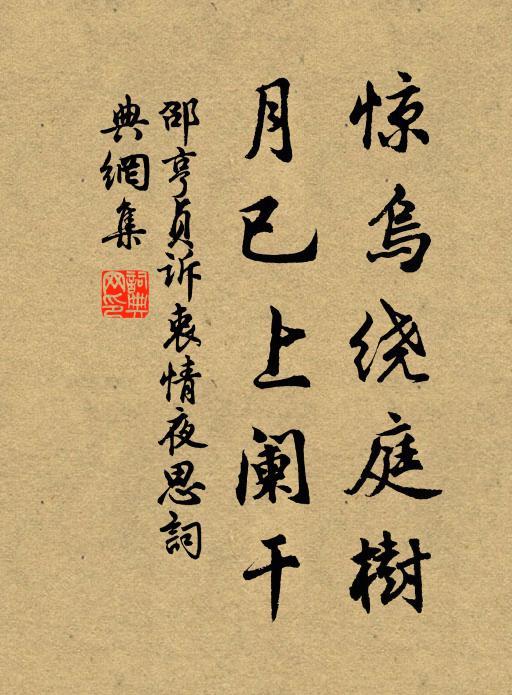 惊乌绕庭樹
月已上阑干
邵亨貞诉衷情夜思詞
典網集
詞典网印